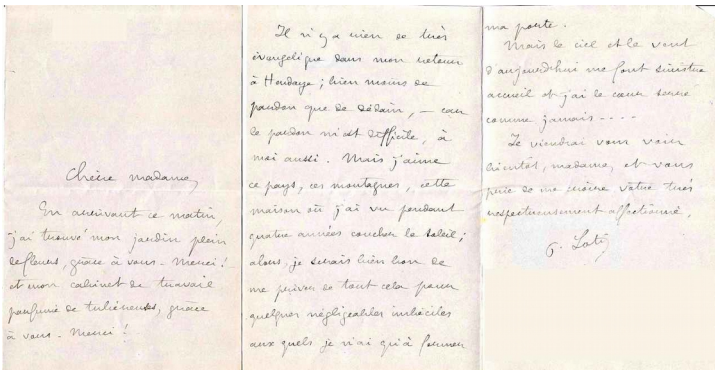 Chère madame,
En arrivant ce matin,
j'ai trouvé mon jardin plein
de fleurs, grâce à vous. Merci!
et mon cabinet de travail
parfumé de tubéreuses, grâce
à vous. Merci!
Il n'y a rien de très
évangélique dans mon retour
à Hendaye; bien moins de
pardon que de dédain, — car
le pardon m'est difficile, à
moi aussi. Mais j'aime
ce pays, ces montagnes, cette
maison où j'ai vu pendant
quatre années coucher le soleil;
alors, je serais bien bon de
me priver de tout cela pour
quelques négligeables imbéciles
aux quels je n'ai qu'à fermer
ma porte.
Mais le ciel et le vent
d'aujourd'hui me font sinistre
accueil et j'ai le cœur serré
comme jamais ----
Je viendrai vous voir
bientôt, madame, et vous
prie de me croire votre très
respectueusement affectionné,
P. Loti